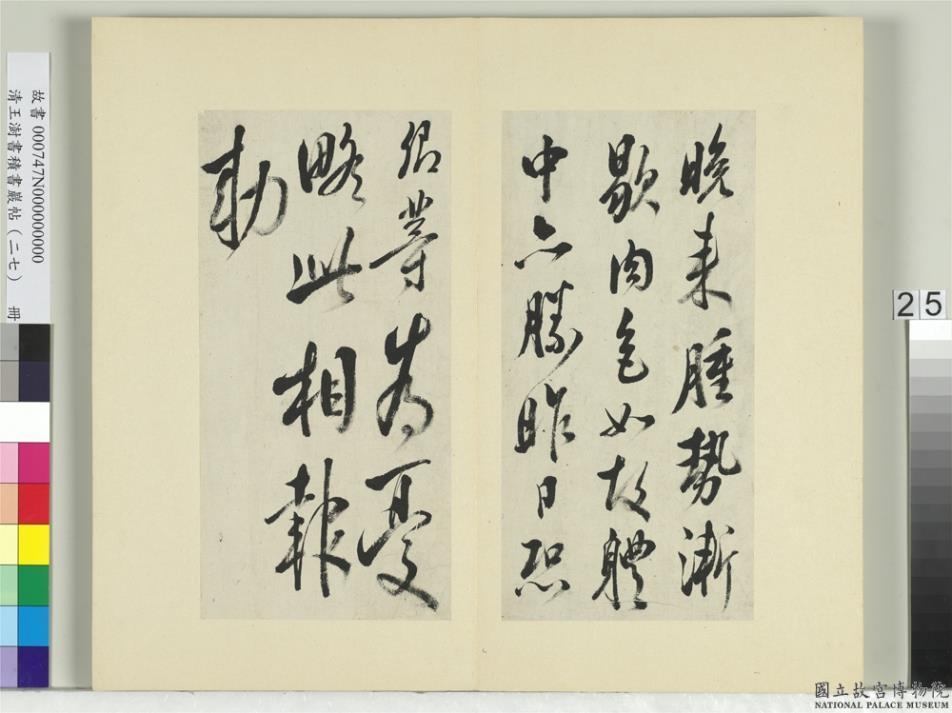 晚来腫勢漸
歇肉色如故體
中亦勝昨日恐
卿等為憂
略此相報
勅
故書 000747N000000000
清王澍書積書巖帖(二七) 冊
25
國立故宮博物院
NATIONAL PALACE MUSEUM